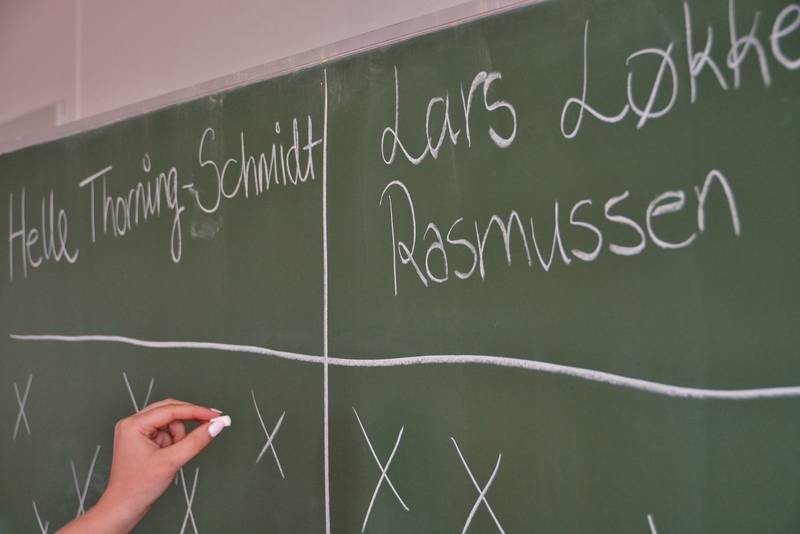 Helle Thorning-Schmidt
Lars Løkke
Rasmussen
X X X X X
X X X X